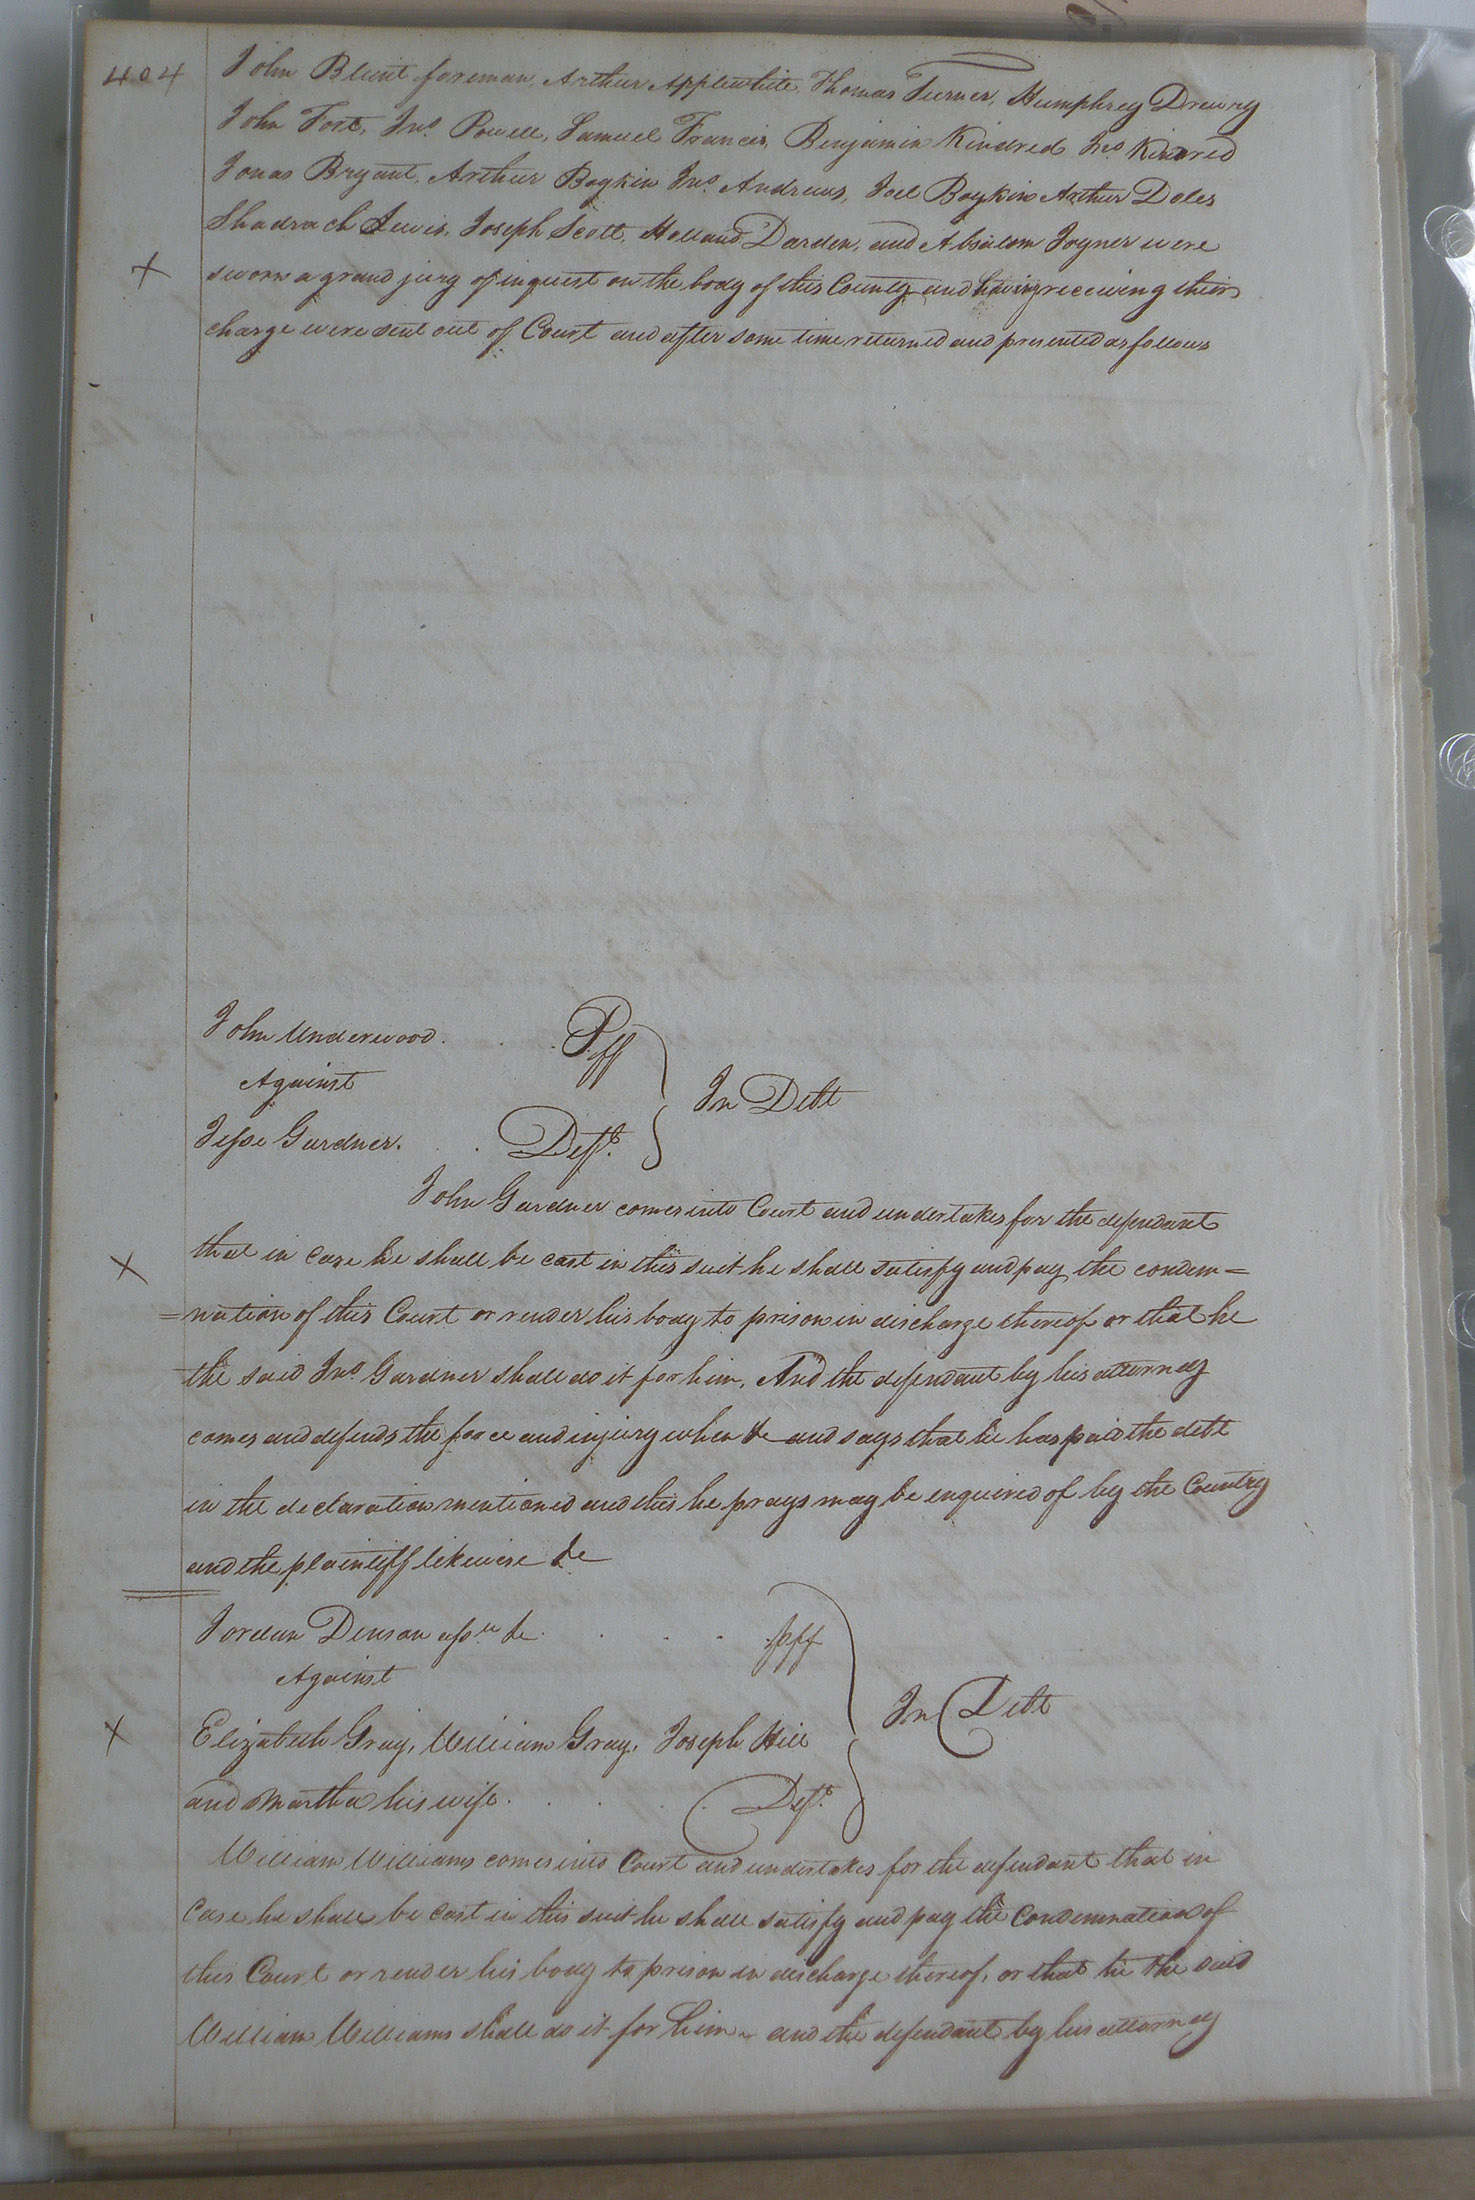 404
John Blunt foreman, Arthur Applewhite, Thomas Turner, Humphrey Drewry
John Fort, Jno. Powell, Samuel Francis, Benjamin Kindred Jno Kindred
Jonas Bryant, Arthur Boykin Jno. Andrews, Joel Boykin Arthur Doles
Shadrach Lewis, Joseph Scott, Holland Darden, and Absalom Joyner were
sworn a grand jury of inquest on the body of this County and having receiving their
charge were sent out of Court and after some time returned and presented as follows
John Underwood . . . Pff
Against
In Debt
Jesse Gardner. . . Deft.
John Gardner comes into Court and undertakes for the defendant
that in case he shall be cast in this suit he shall satisfy and pay the condem=
=nation of this Court or render his body to prison in discharge thereof or that he
the said Jno. Gardner shall do it for him, And the defendant by his attorney
comes and defends the force and injury when &c and says that he has paid the debt
in the declaration mentioned and this he prays may be enquired of by the Country
and the plaintiff likewise &c
Jordan Denson assee &c . . . pff
Against
In Debt
Elizabeth Gray, William Gray, Joseph Hill
and Martha his wife . . . . Deft.
William Williams comes into Court and undertakes for the defendant that in
Case he shall be cast in this suit he shall satisfy and pay the Condemnation of
this Court or render his body to prison in discharge thereof, or that he the said
William Williams shall do it for him and the defendant by his attorney